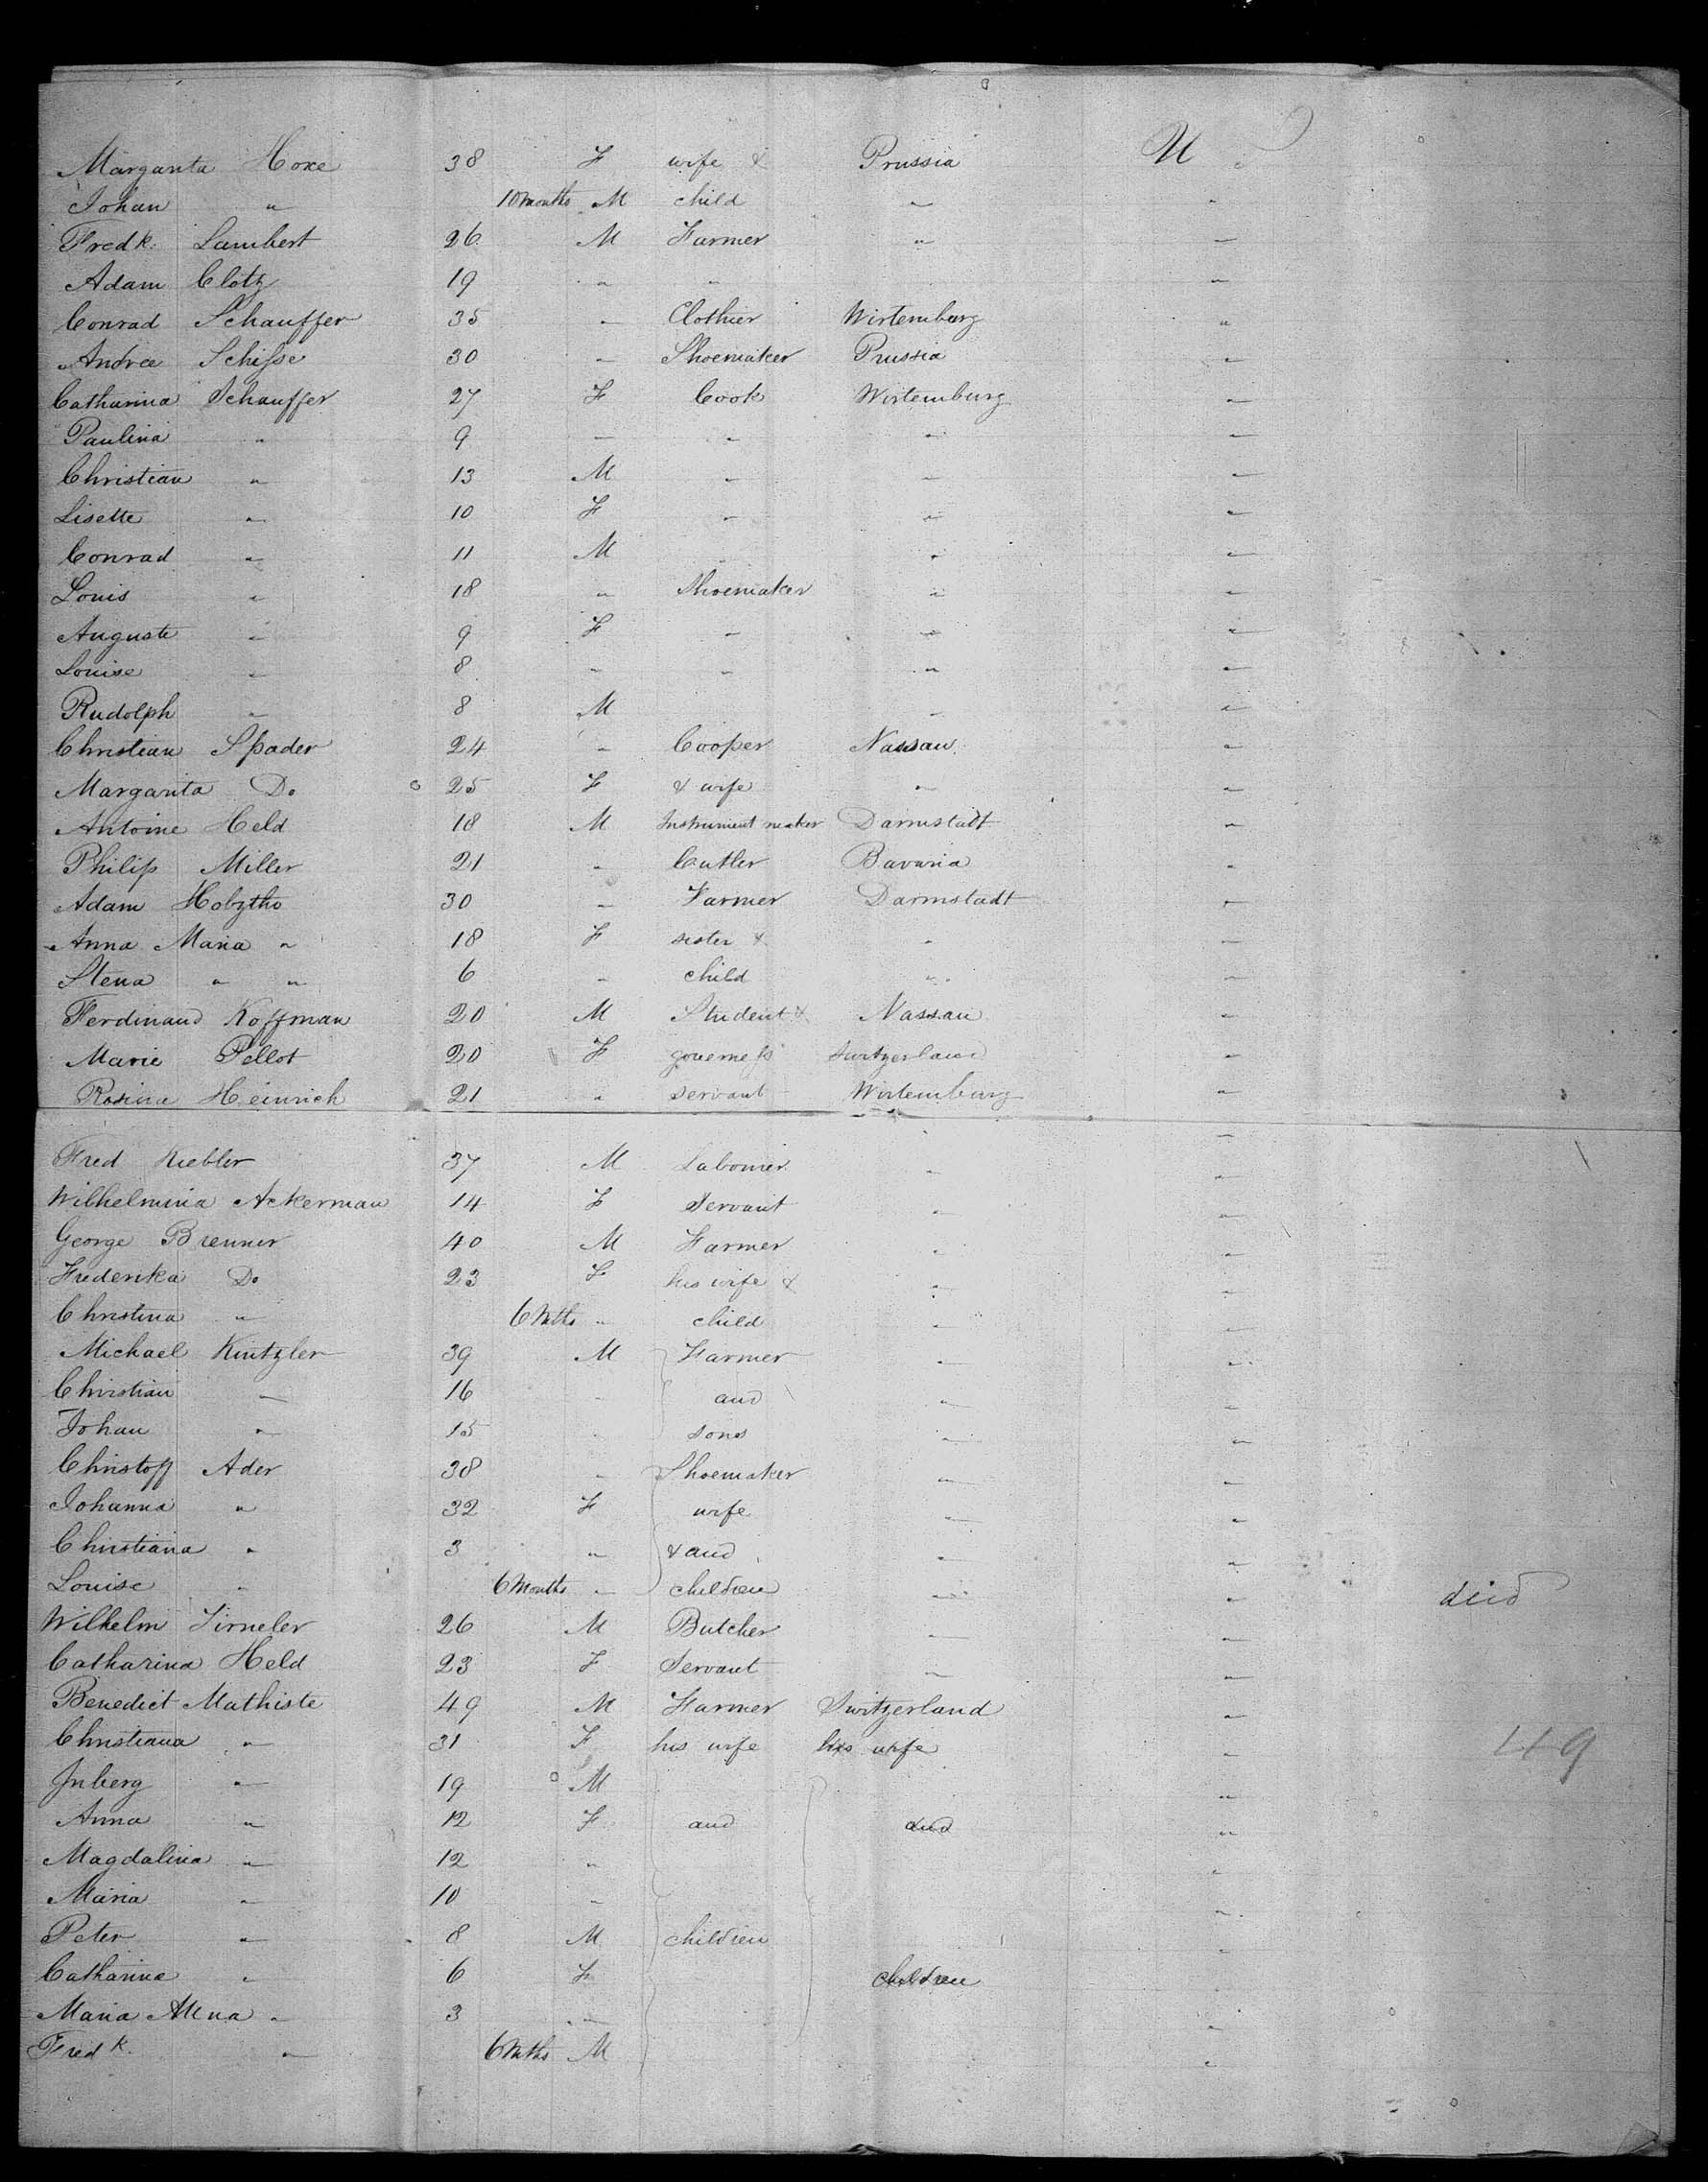 Margarita Hoxe 38 F wife & Prussia U
Johan " 10 months M child " "
Fredk. Lambert 26 M Farmer " "
Adam Clotz 19 " " "
Conrad Schauffer 35 " Clothier Wirtemburg "
Andrea Schifse 30 " Shoemaker Prussia "
Catharina Schauffer 27 F Cook Wirtemburg "
Paulina " 9 " " " "
Christian " 13 M " " "
Lisette " 10 F " " "
Conrad " 11 M " "
Louis " 18 " Shoemaker " "
Auguste " 9 F " " "
Louise " 8 " " " "
Rudolph " 8 M " "
Christian Spader 24 " Cooper Nassau "
Margarita Do 25 F & wife " "
Antoine Held 18 M Instrument maker Darmstadt "
Philip Miller 21 " Cutler Bavaria "
Adam Hobytho 30 " Farmer Darmstadt "
Anna Maria " 18 F sister & " "
Stena " " 6 " child " "
Ferdinand Koffman 20 M Student & Nassau "
Marie Pellot 20 F governess Switzerland "
Rosina Heinrich 21 " servant Wirtemburg "
Fred Kiebler 37 M Labourer " "
Wilhelmina Ackerman 14 F Servant " "
George Brenner 40 M Farmer " "
Frederika Do 23 F his wife & " "
Christina " 6 Mths " child " "
Michael Kintzler 39 M Farmer " "
Christian " 16 " and " "
Johan " 15 " sons " "
Christoff Ader 38 " Shoemaker " "
Johanna " 32 F wife " "
Christiana " 3 " & and " "
Louise " 6 Months " children " " died
Wilhelm Sirneler 26 M Butcher " "
Catharina Held 23 F Servant " "
Benedict Mathiste 49 M Farmer Switzerland "
Christiana " 31 F his wife his wife " 119
Inberg " 19 M "
Anna " 12 F and and "
Magdalina " 12 " "
Maria " 10 " "
Peter " 8 M children "
Catharine " 6 F children "
Maria " 3 " "
Fredk. " 6 Mths M "